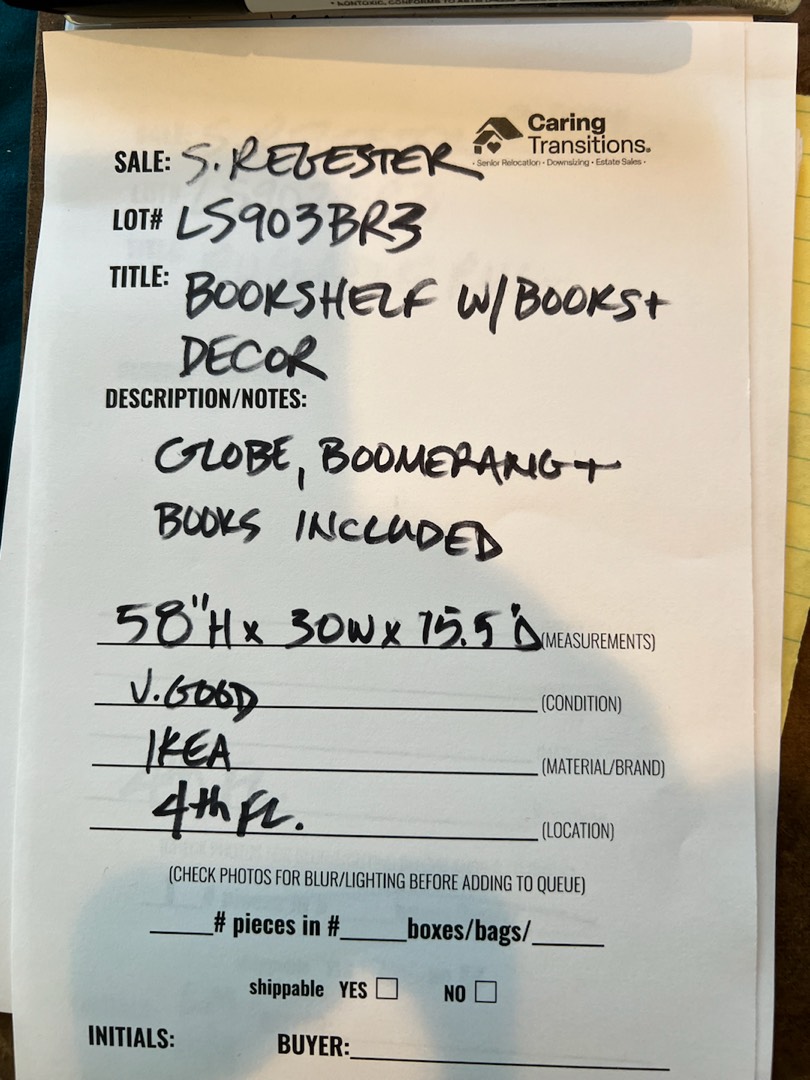 Caring
Transitions.
· Senior Relocation · Downsizing · Estate Sales ·
SALE: S. REGESTER
LOT# LS903BR3
TITLE: BOOKSHELF W/BOOKS+
DECOR
DESCRIPTION/NOTES:
GLOBE, BOOMERANG +
BOOKS INCLUDED
58"H x 30W x 15.5"D (MEASUREMENTS)
V. GOOD (CONDITION)
IKEA (MATERIAL/BRAND)
4th FL. (LOCATION)
(CHECK PHOTOS FOR BLUR/LIGHTING BEFORE ADDING TO QUEUE)
_____# pieces in #_____boxes/bags/_____
shippable YES ☐ NO ☐
INITIALS: BUYER:_____